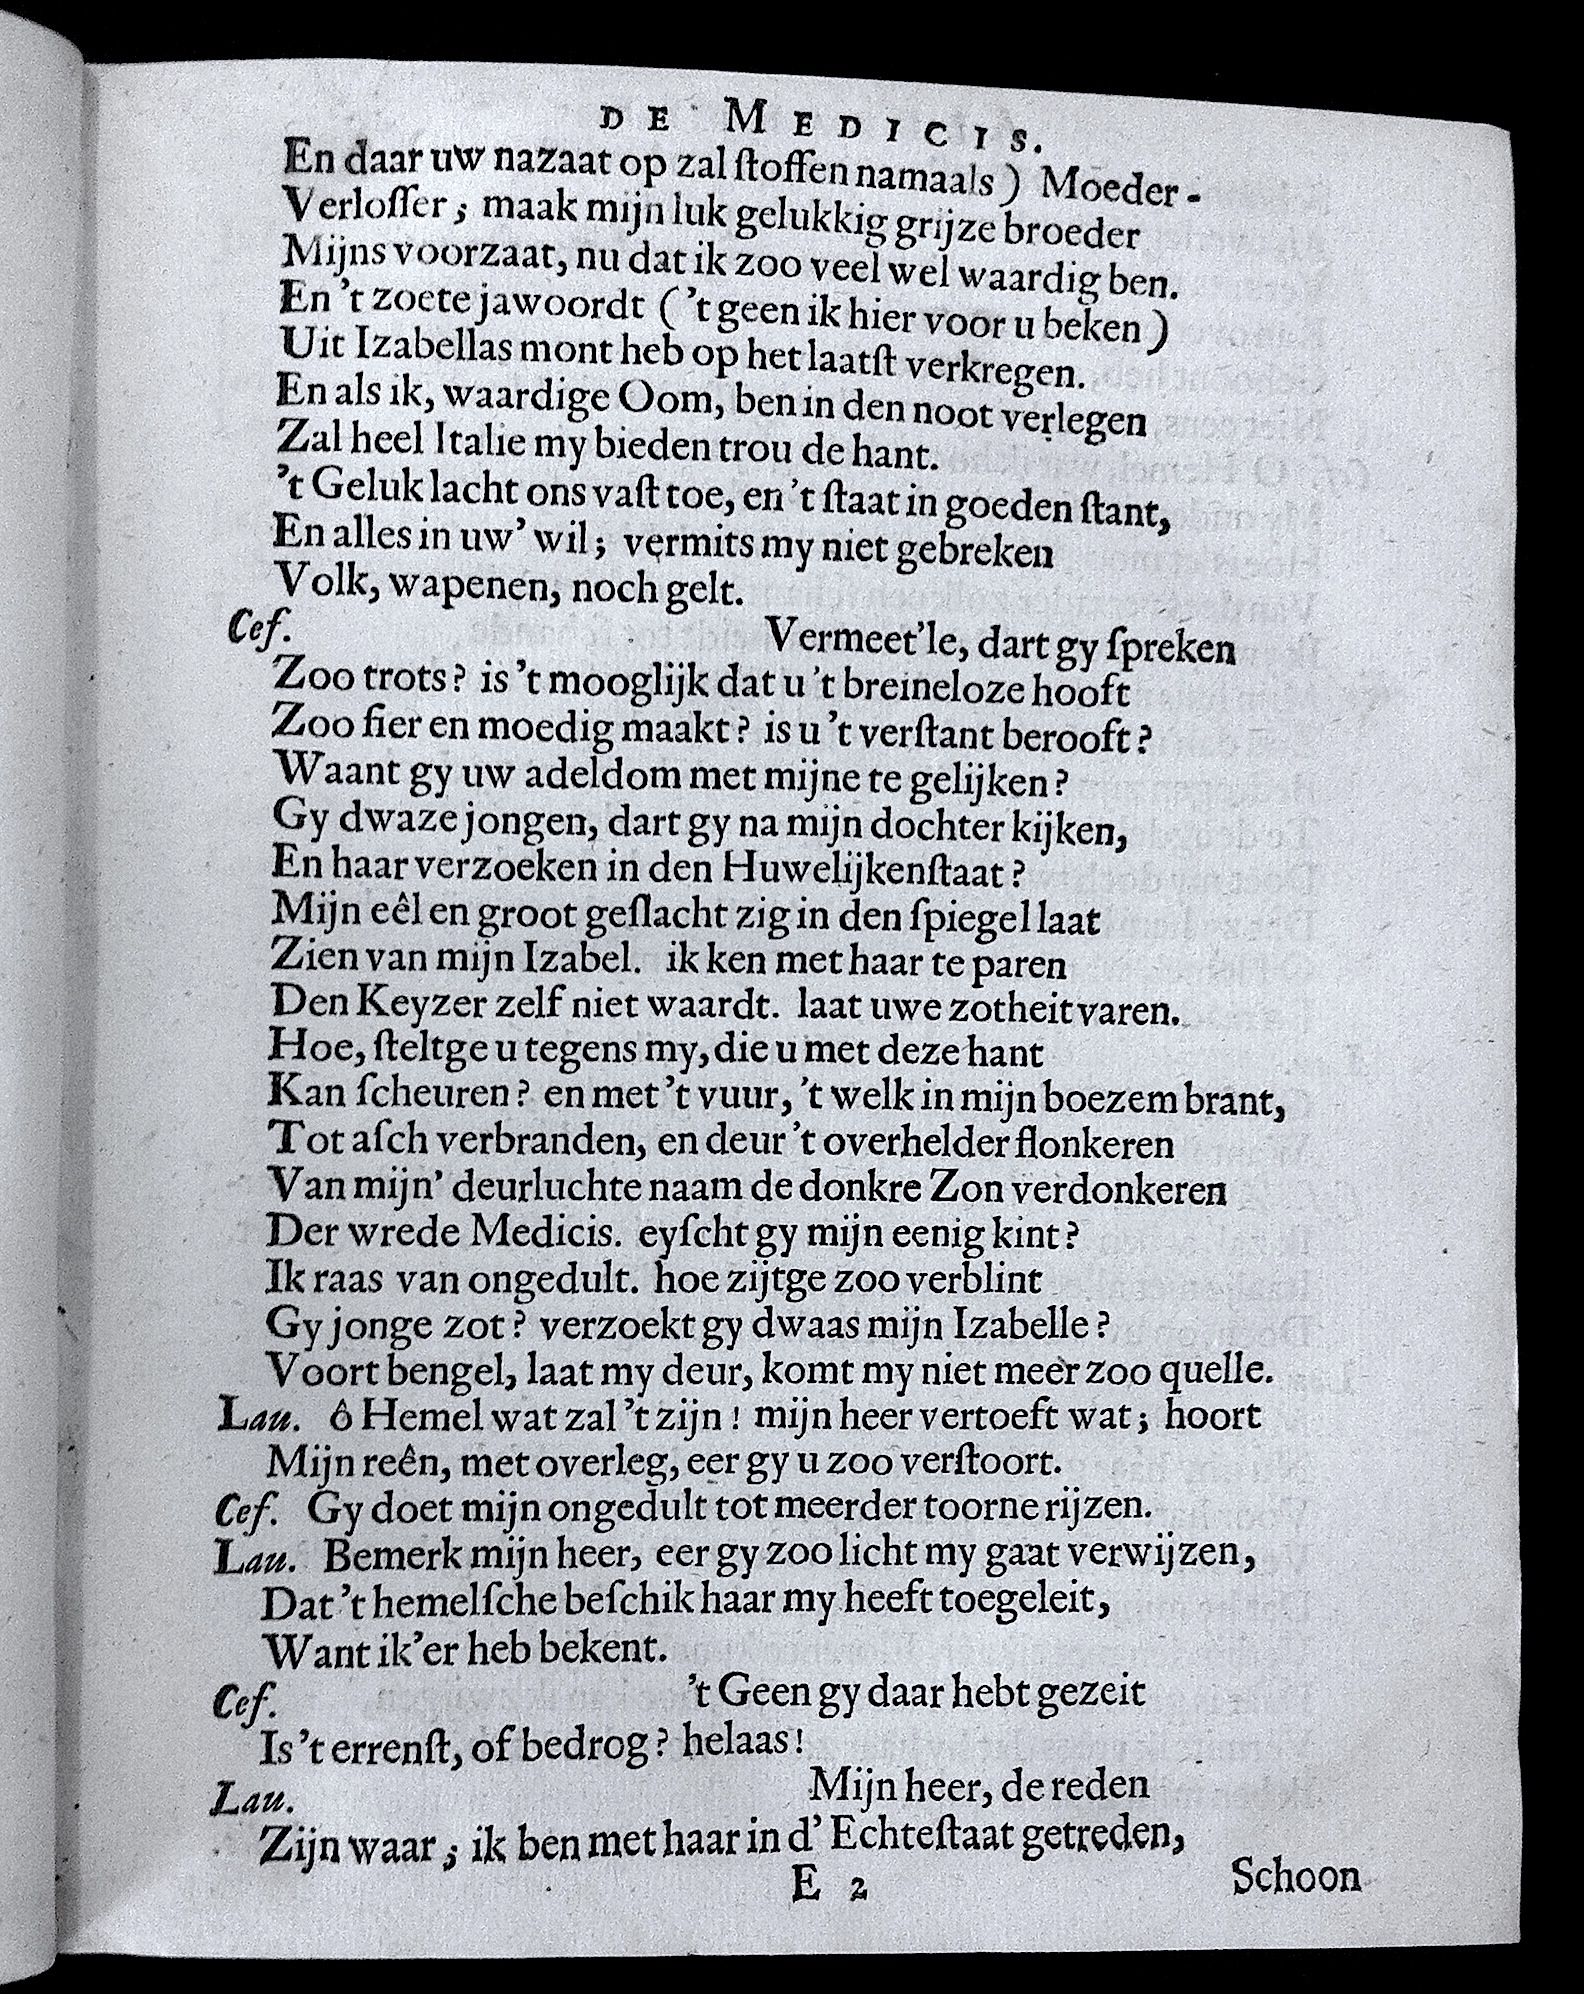 DE MEDICIS.
En daar uw nazaat op zal ſtoffen namaals) Moeder-
Verloſſer; maak mijn luk gelukkig grijze broeder
Mijns voorzaat, nu dat ik zoo veel wel waardig ben.
En 't zoete jawoordt ('t geen ik hier voor u beken)
Uit Izabellas mont heb op het laatſt verkregen.
En als ik, waardige Oom, ben in den noot verlegen
Zal heel Italie my bieden trou de hant.
't Geluk lacht ons vaſt toe, en 't ſtaat in goeden ſtant,
En alles in uw' wil; vermits my niet gebreken
Volk, wapenen, noch gelt.
Ceſ. Vermeet'le, dart gy ſpreken
Zoo trots? is 't mooglijk dat u 't breineloze hooft
Zoo fier en moedig maakt? is u 't verſtant berooft?
Waant gy uw adeldom met mijne te gelijken?
Gy dwaze jongen, dart gy na mijn dochter kijken,
En haar verzoeken in den Huwelijkenſtaat?
Mijn eêl en groot geſlacht zig in den ſpiegel laat
Zien van mijn Izabel. ik ken met haar te paren
Den Keyzer zelf niet waardt. laat uwe zotheit varen.
Hoe, ſteltge u tegens my, die u met deze hant
Kan ſcheuren? en met 't vuur, 't welk in mijn boezem brant,
Tot aſch verbranden, en deur 't overhelder flonkeren
Van mijn' deurluchte naam de donkre Zon verdonkeren
Der wrede Medicis. eyſcht gy mijn eenig kint?
Ik raas van ongedult. hoe zijtge zoo verblint
Gy jonge zot? verzoekt gy dwaas mijn Izabelle?
Voort bengel, laat my deur, komt my niet meer zoo quelle.
Lau. ô Hemel wat zal 't zijn! mijn heer vertoeft wat; hoort
Mijn reên, met overleg, eer gy u zoo verſtoort.
Ceſ. Gy doet mijn ongedult tot meerder toorne rijzen.
Lau. Bemerk mijn heer, eer gy zoo licht my gaat verwijzen,
Dat 't hemelſche beſchik haar my heeft toegeleit,
Want ik'er heb bekent.
Ceſ. 't Geen gy daar hebt gezeit
Is 't errenſt, of bedrog? helaas!
Lau. Mijn heer, de reden
Zijn waar; ik ben met haar in d' Echteſtaat getreden,
E 2 Schoon